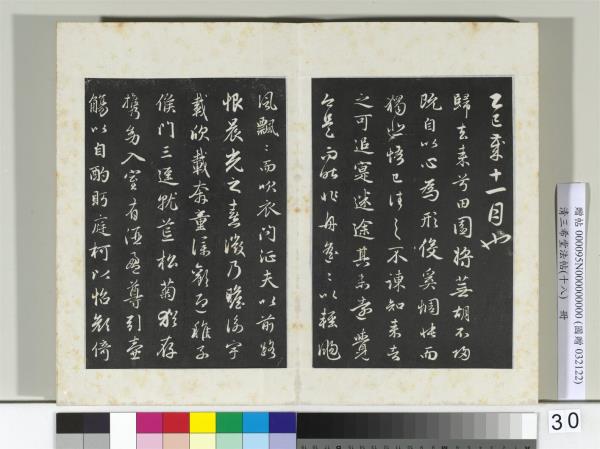 乙巳歲十一月也
歸去來兮田園將蕪胡不歸
既自以心為形役奚惆悵而
獨悲悟已往之不諫知來者
之可追寔迷途其未遠覺
今是而昨非舟遙〻以輕颺
風飄〻而吹衣問征夫以前路
恨晨光之熹微乃瞻衡宇
載欣載奔童僕歡迎稚子
候門三逕就荒松菊猶存
攜幼入室有酒盈尊引壺
觴以自酌眄庭柯以怡顏倚
贈帖 000095N000000000 (國贈 032122)
清三希堂法帖(十八) 冊
30